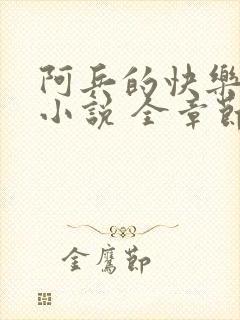 阿兵的快樂
小說 全章節
金鷹節